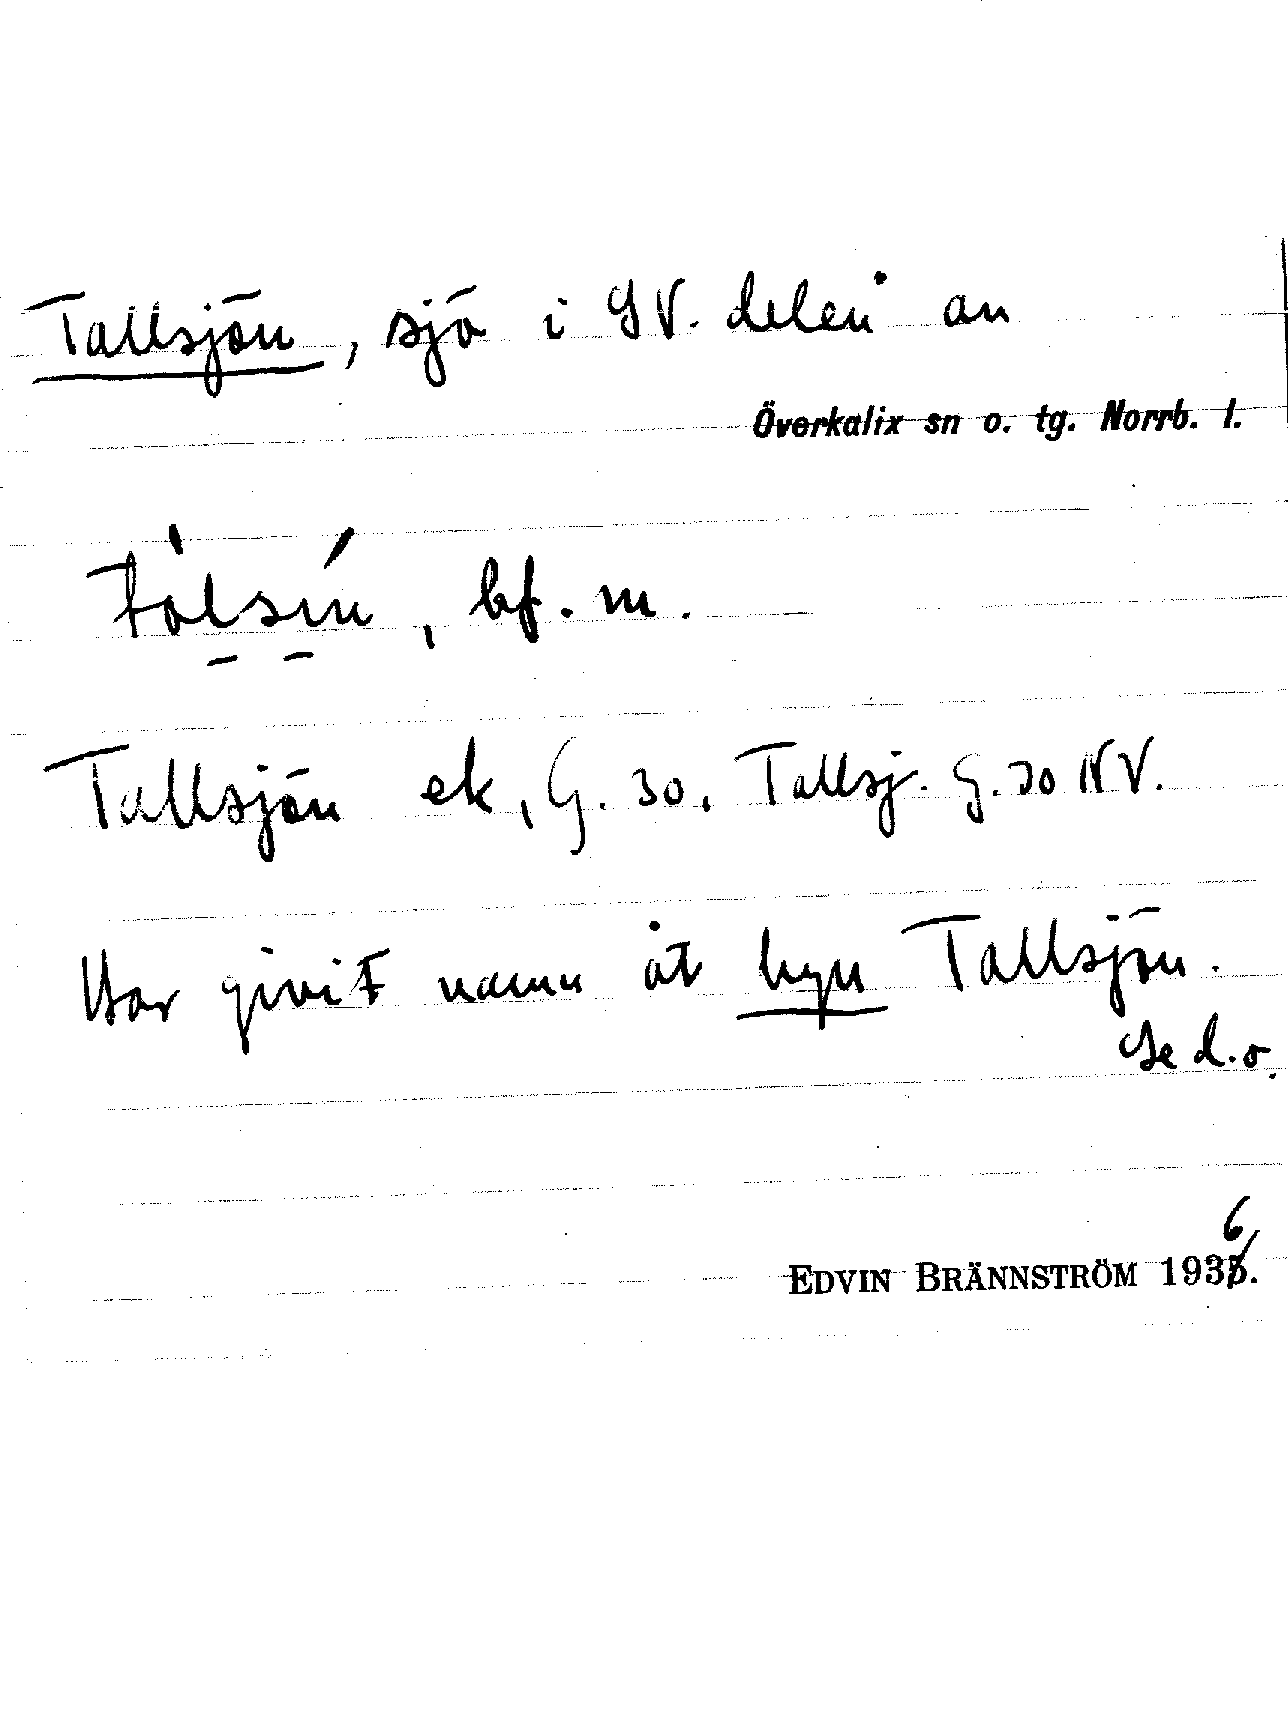 Tallsjön, sjö i SV. delen av
Överkalix sn o. tg. Norrb. l.
tålsı̣́n, bf. m.
Tallsjön ek, G. 30. Tallsj. G. 30 NV.
Har givit namn åt byn Tallsjön.
Se d.o.
EDVIN BRÄNNSTRÖM 1936.